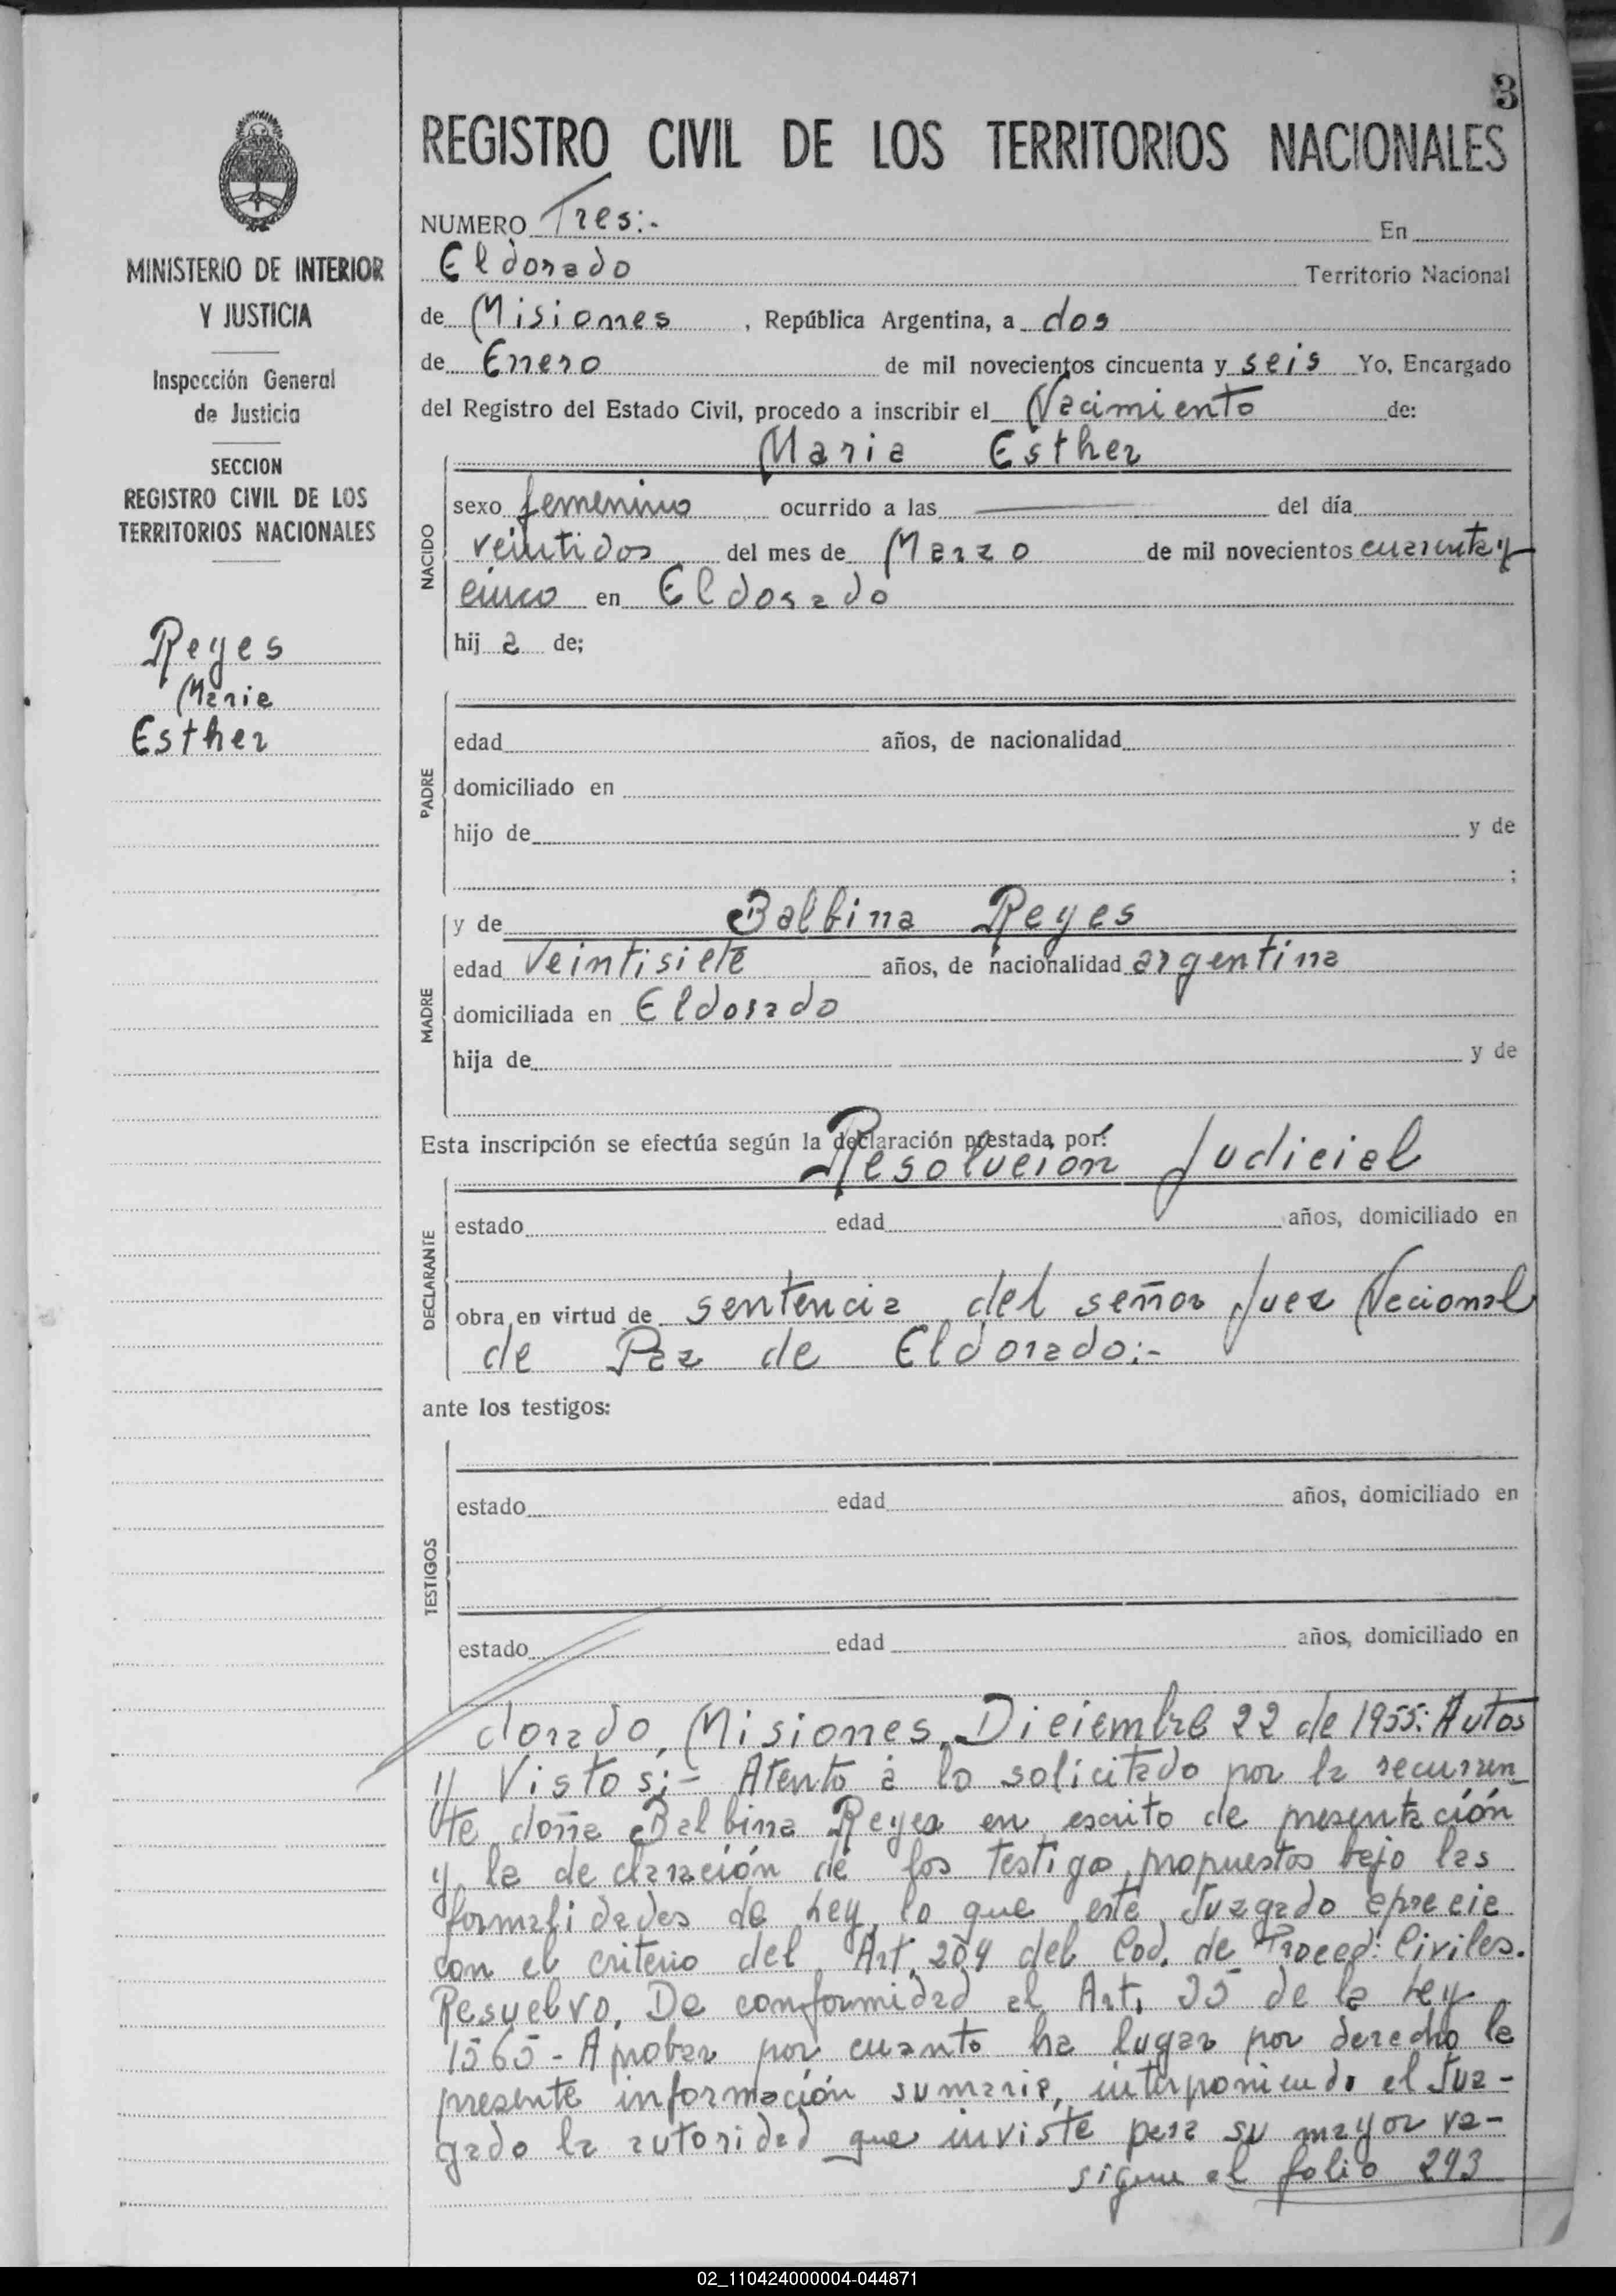 3
REGISTRO CIVIL DE LOS TERRITORIOS NACIONALES
MINISTERIO DE INTERIOR
Y JUSTICIA
Inspección General
de Justicia
SECCION
REGISTRO CIVIL DE LOS
TERRITORIOS NACIONALES
Reyes
Maria
Esther
NUMERO Tres:- En
Eldorado Territorio Nacional
de Misiones, República Argentina, a dos
de Enero de mil novecientos cincuenta y seis Yo, Encargado
del Registro del Estado Civil, procedo a inscribir el Nacimiento de:
Maria Esther
NACIDO
sexo femenino ocurrido a las — del día
veintidos del mes de Marzo de mil novecientos cuarenta y
cinco en Eldorado
hij a de;
PADRE
edad años, de nacionalidad
domiciliado en
hijo de y de
;
MADRE
y de Balbina Reyes
edad veintisiete años, de nacionalidad argentina
domiciliada en Eldorado
hija de y de
Esta inscripción se efectúa según la declaración prestada por:
Resolucion Judicial
DECLARANTE
estado edad años, domiciliado en
obra en virtud de sentencia del señor Juez Nacional
de Paz de Eldorado:-
ante los testigos:
TESTIGOS
estado edad años, domiciliado en
estado edad años, domiciliado en
dorado, Misiones, Diciembre 22 de 1955: Autos
y Vistos:- Atento a lo solicitado por la recurren
te doña Balbina Reyes en escrito de presentación
y la declaración de los testigos propuestos bajo las
formalidades de Ley, lo que este Juzgado aprecia
con el criterio del Art. 204 del Cod. de Proced: Civiles.
Resuelvo, De conformidad al Art. 35 de la Ley
1565 - Aprobar por cuanto ha lugar por derecho la
presente información sumaria, interponiendo el Juz-
gado la autoridad que inviste para su mayor va-
sigue al folio 293
02_110424000004-044871